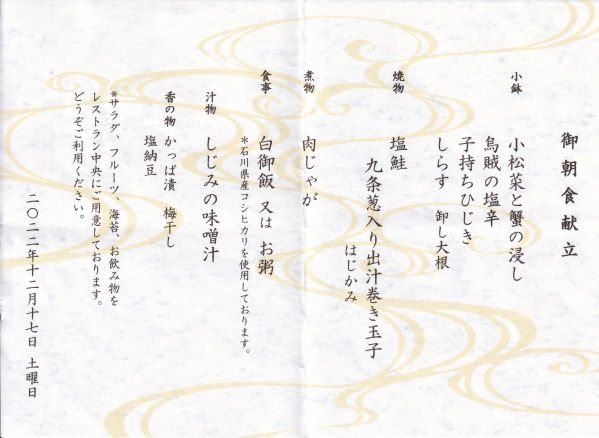 御朝食献立
小鉢　小松菜と蟹の浸し
烏賊の塩辛
子持ちひじき
しらす　卸し大根
焼物　塩鮭
九条葱入り出汁巻き玉子
はじかみ
煮物　肉じゃが
食事　白御飯 又は お粥
＊石川県産コシヒカリを使用しております。
汁物　しじみの味噌汁
香の物　かっぱ漬　梅干し
塩納豆
＊サラダ、フルーツ、海苔、お飲み物を
レストラン中央にご用意しております。
どうぞご利用ください。
二〇二二年十二月十七日　土曜日